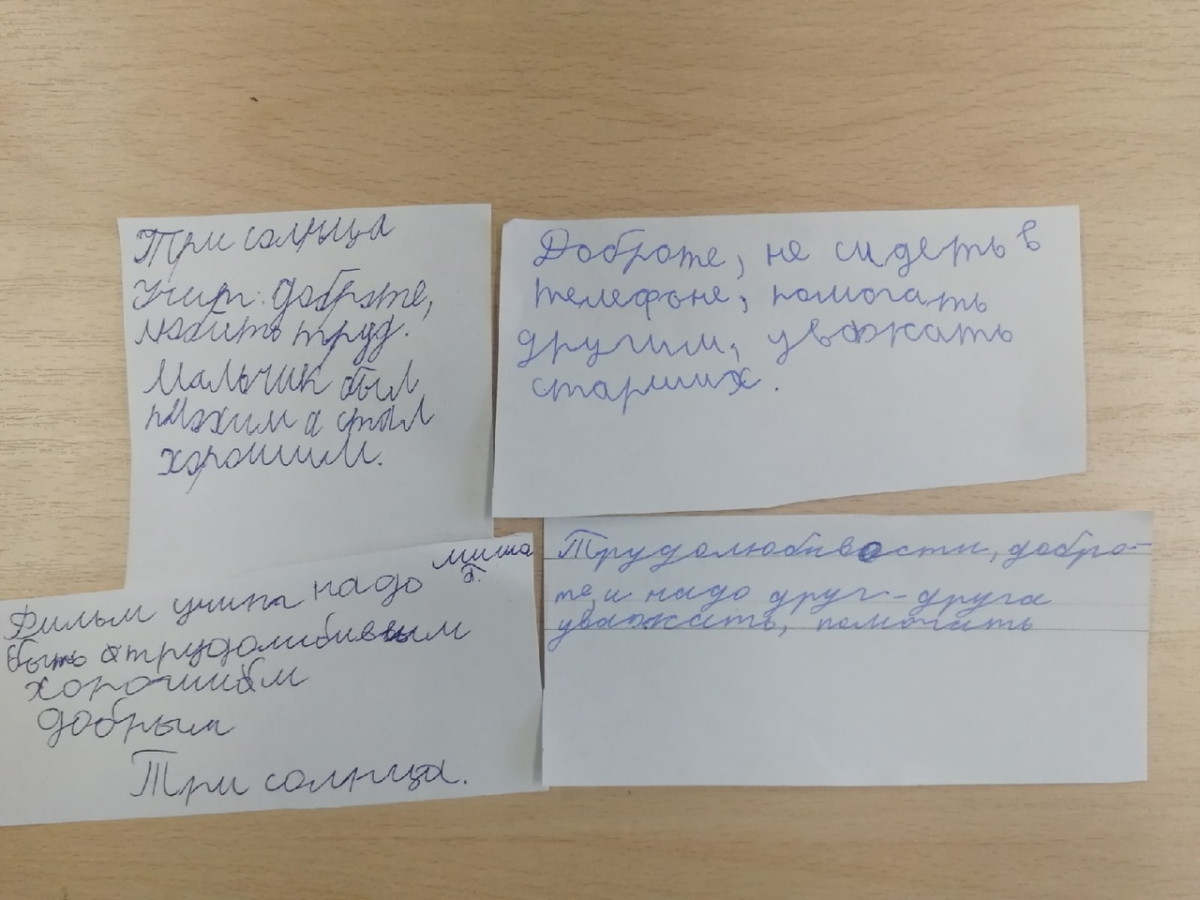 Три солнца
учит: доброте,
любить труд.
Мальчик был
плохим а стал
хорошим.
Доброте, не сидеть в
телефоне, помогать
другим, уважать
старших.
Миша
Фильм учит надо
быть трудолибивым
хорошим
добрым
Три солнца.
Трудолюбивости, добро-
те, и надо друг-друга
уважать, помогать